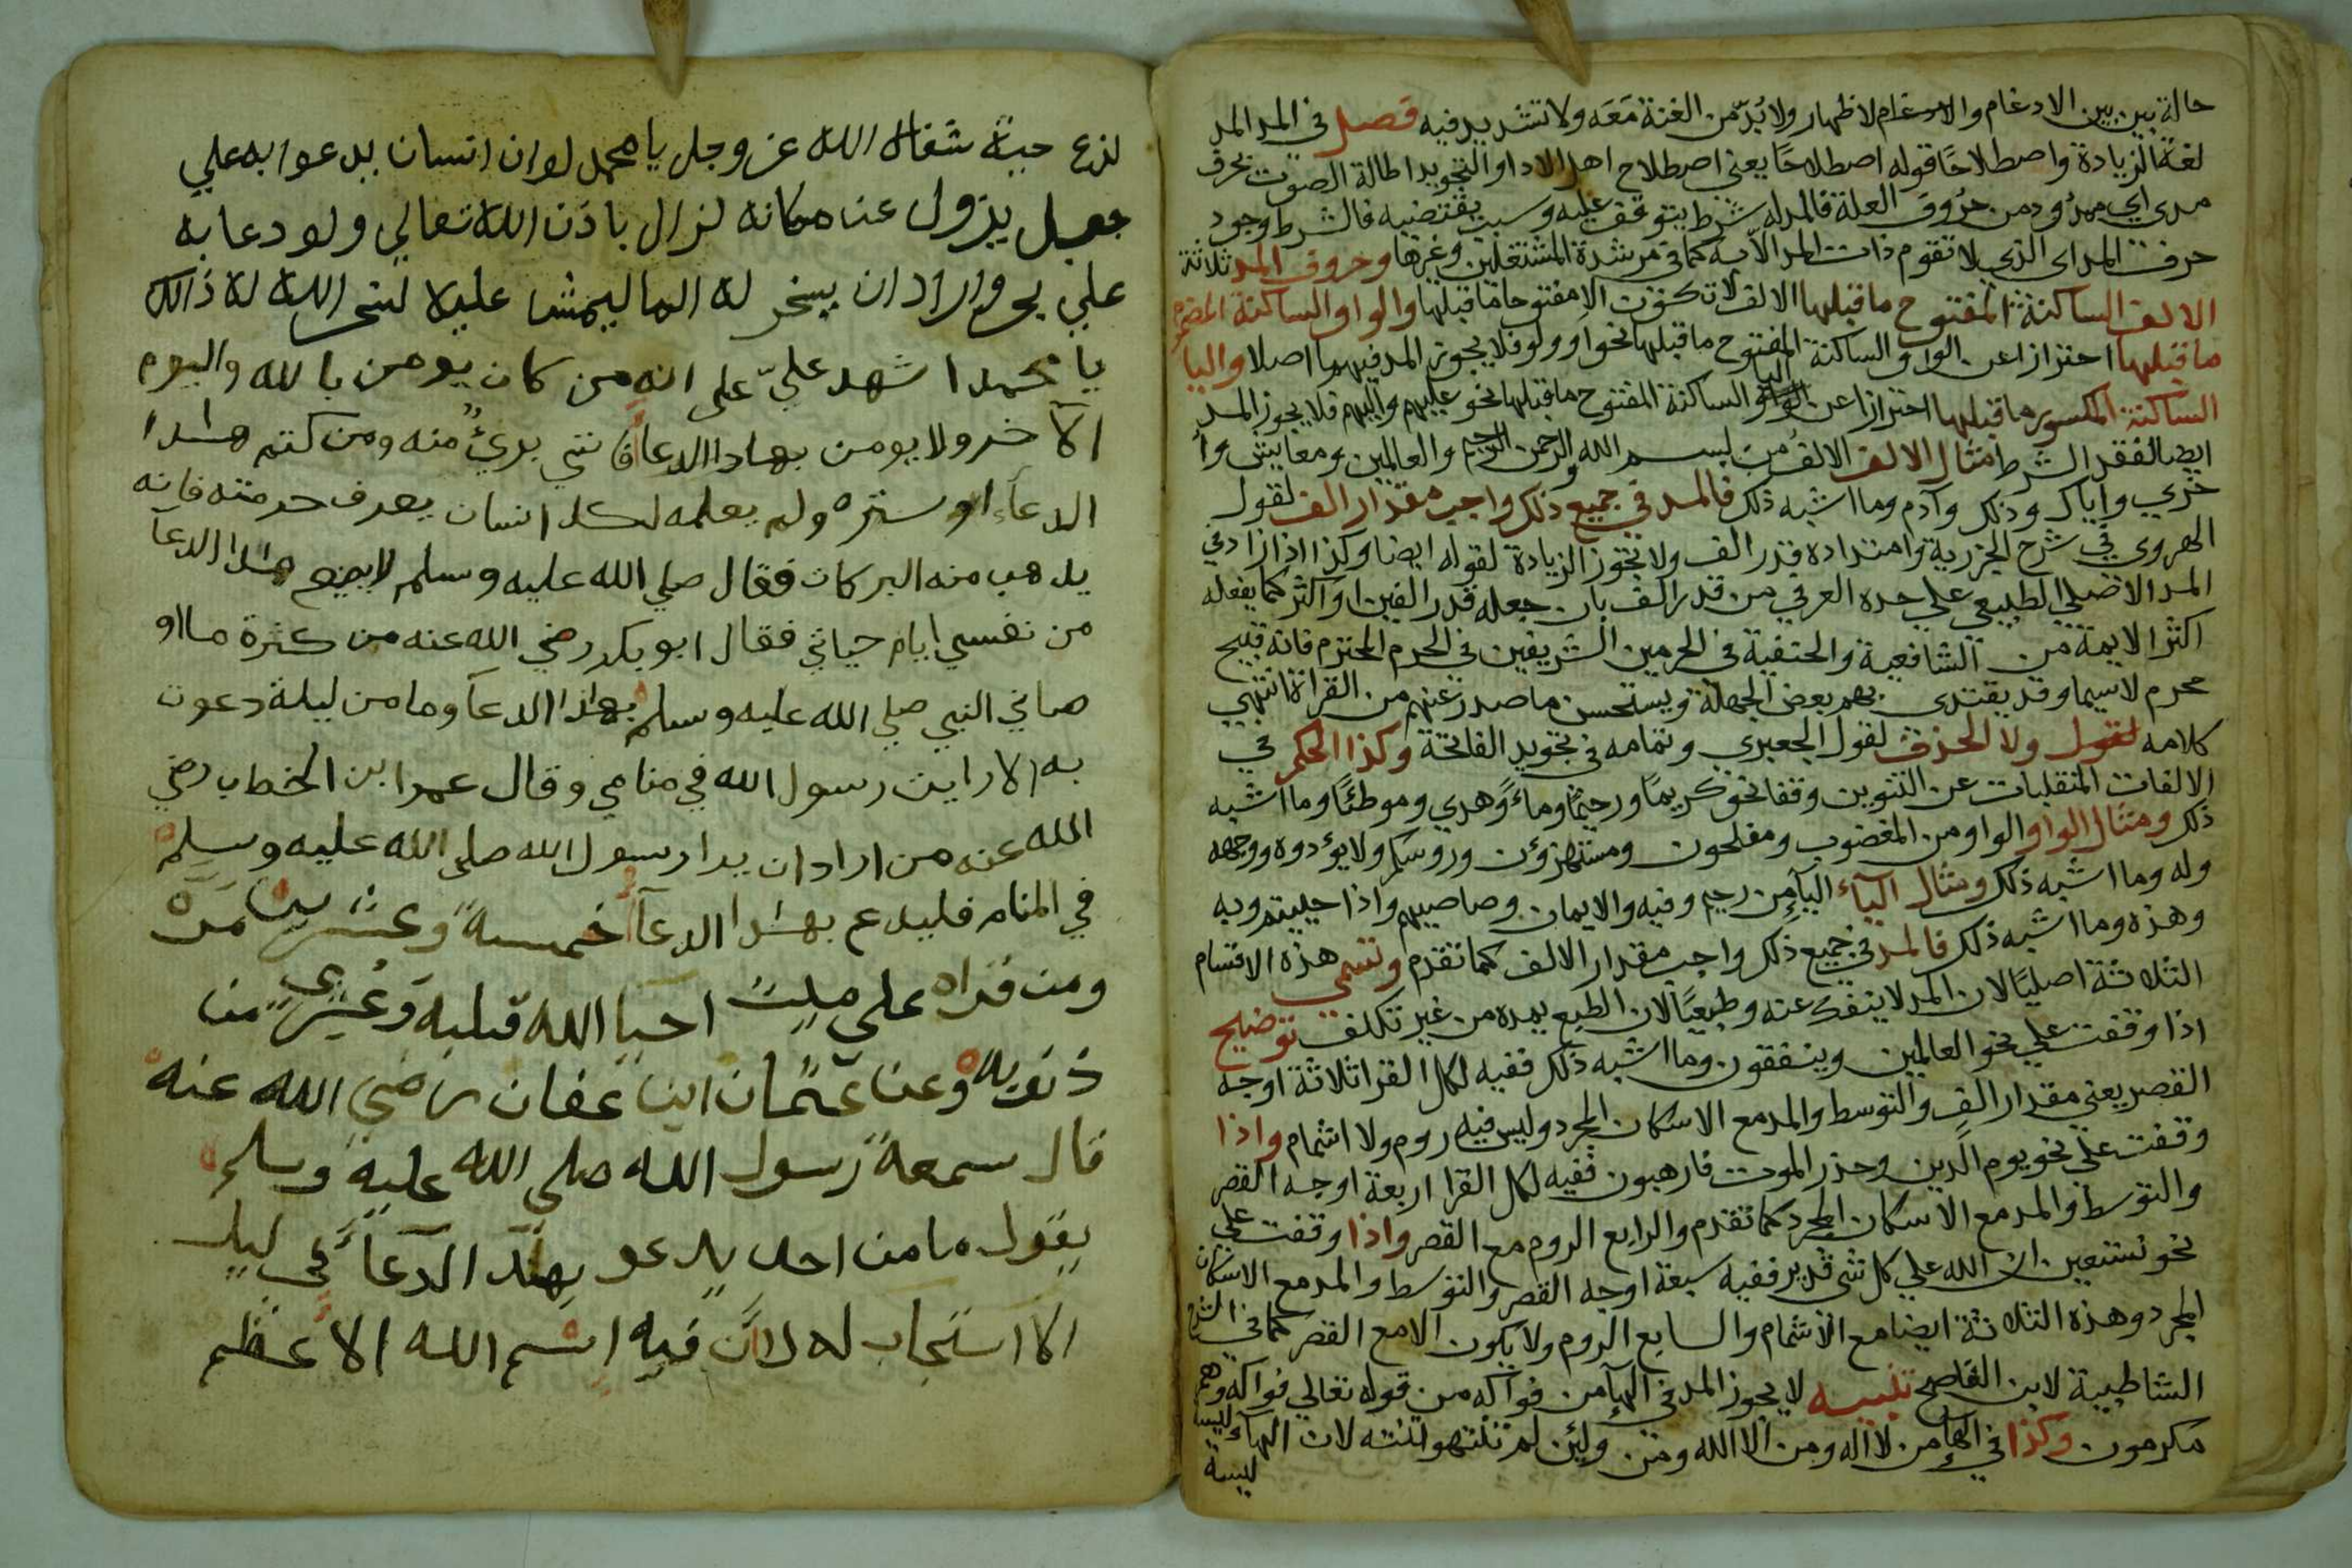 حالة بين بين الادغام والادغام لاظهار ولا بُدّ من الغنة مَعَه ولا تشديد فيه فصل في المد المد
لغةً الزيادة واصطلاحًا قوله اصطلاحًا يعني اصطلاح اهل الادا والتجويد اطالة الصوت بحرف
مدي اي ممدود من حُروف العلة فالمد له شرط يتوقف عليه وسبب يقتضيه فالشرط وجود
حرف المد اي الذي لا تقوم ذات المد الا به كما في مرشدة المشتغلين وغيرها وحروف المد ثلاثة
الالف الساكنة المفتوح ما قبلها الالف لا تكون الا مفتوحا ما قبلها والواو الساكنة المضموم
ما قبلها احترازا عن الواو الساكنة المفتوح ما قبلها نحو او ولو فلا يجوز المد فيهما اصلا واليا
الساكنة المكسور ما قبلها احترازا عن اليا الساكنة المفتوح ما قبلها نحو عليهم واليهم فلا يجوز المد
ايضا لفقد الشرط مثال الالف الالف من بسم الله والرحمن الرحيم والعالمين ومعايش وا
خري واياك وذلك وآدم وما اشبه ذلك فالمد في جميع ذلك واجب مقدار الف لقول
الهروي في شرح الجزرية وامتداده قدر الف ولا تجوز الزيادة لقوله ايضا وكذا اذا زاد في
المد الاصلي الطبيعي علي حده العرفي من قدر الف بان جعله قدر الفين او اكثر كما يفعله
اكثر الايمة من الشافعية والحنفية في الحرمين الشريفين في الحرم المحترم فانه قبيح
محرم لاسيما وقد يقتدي بهم بعض الجهلة ويستحسن ما صدر عنهم من القراة انتهي
كلامه لقول ولا الحذف لقول الجعبري وتمامه في تجويد الفاتحة وكذا الحكم في
الالفات المنقلبات عن التنوين وقفا نحو كريمًا ورحيمًا وماءً وهدي وموطئًا وما اشبه
ذلك ومثال الواو الواو من المغضوب ومفلحون ومستهزؤن وروسكم ولا يؤدوه ووجهه
وله وما اشبه ذلك ومثال الياء اليآ من رحيم وفيه والايمان وصاصيهم واذا حييتم وبه
وهذه وما اشبه ذلك فالمد في جميع ذلك واجب مقدار الالف كما تقدم وتسمي هذه الاقسام
الثلاثة اصليًا لان المد لا ينفك عنه وطبيعيًا لان الطبع يمده من غير تكلف توضيح
اذا وقفت علي نحو العالمين وينفقون وما اشبه ذلك ففيه لكل القرا ثلاثة اوجه
القصر يعني مقدار الف والتوسط والمد مع الاسكان المجرد وليس فيه روم ولا اشمام واذا
وقفت علي نحو يوم الدين وحذر الموت فارهبون ففيه لكل القرا اربعة اوجه القصر
والتوسط والمد مع الاسكان المجرد كما تقدم والرابع الروم مع القصر واذا وقفت علي
نحو نستعين ان الله علي كل شي قدير ففيه سبعة اوجه القصر والتوسط والمد مع الاسكان
المجرد وهذه الثلاثة ايضا مع الاشمام والسابع الروم ولا يكون الا مع القصر كما في شرح
الشاطبية لابن القاصح تنبيه لا يجوز المد في الهآ من فواكه من قوله تعالي فواكه وهم
مكرمون وكذا في الهآ من لا اله ومن الا الله ومن ولئن لم تنتهوا لئنته لان الهآ ليسة
ليسة
لزع حبة شقال الله عز وجل يا محمد لو ان انسان يدعوا به علي
جبل يزول عن مكانه لزال باذن الله تعالي ولو دعا به
علي بحر واراد ان يسخر له الما ليمشا عليه لا لسخر الله له ذالك
يا محمد اشهد عليّ على انه من كان يومن بالله واليوم
الآخر ولا يومن بهاذا الدعآ فانني بريءٌ منه ومن كتم هاذا
الدعآء او ستره ولم يعلمه لكل انسان يعرف حرمته فانه
يذهب منه البركات فقال صلي الله عليه وسلم لا يضيع هاذا الدعآ
من نفسي ايام حياتي فقال ابو بكر رضي الله عنه من كثرة ما او
صاني النبي صلي الله عليه وسلم بهاذا الدعآ وما من ليلة دعوت
به الا رايت رسول الله في منامي وقال عمر ابن الخطاب رضي
الله عنه من اراد ان يرا رسول الله صلى الله عليه وسلم
في المنام فليدع بهاذا الدعآ خمسةً وعشرين مَرة
ومن قراه على ميت احيا الله قلبه وغفر من
ذنوبه وعن عثمان ابن عفان رضي الله عنه
قال سمعة رسول الله صلى الله عليه وسلم
يقول ما من احد يدعو بهذا الدعآ في ليل
الا استجاب له لان فيه اسم الله الاعظم